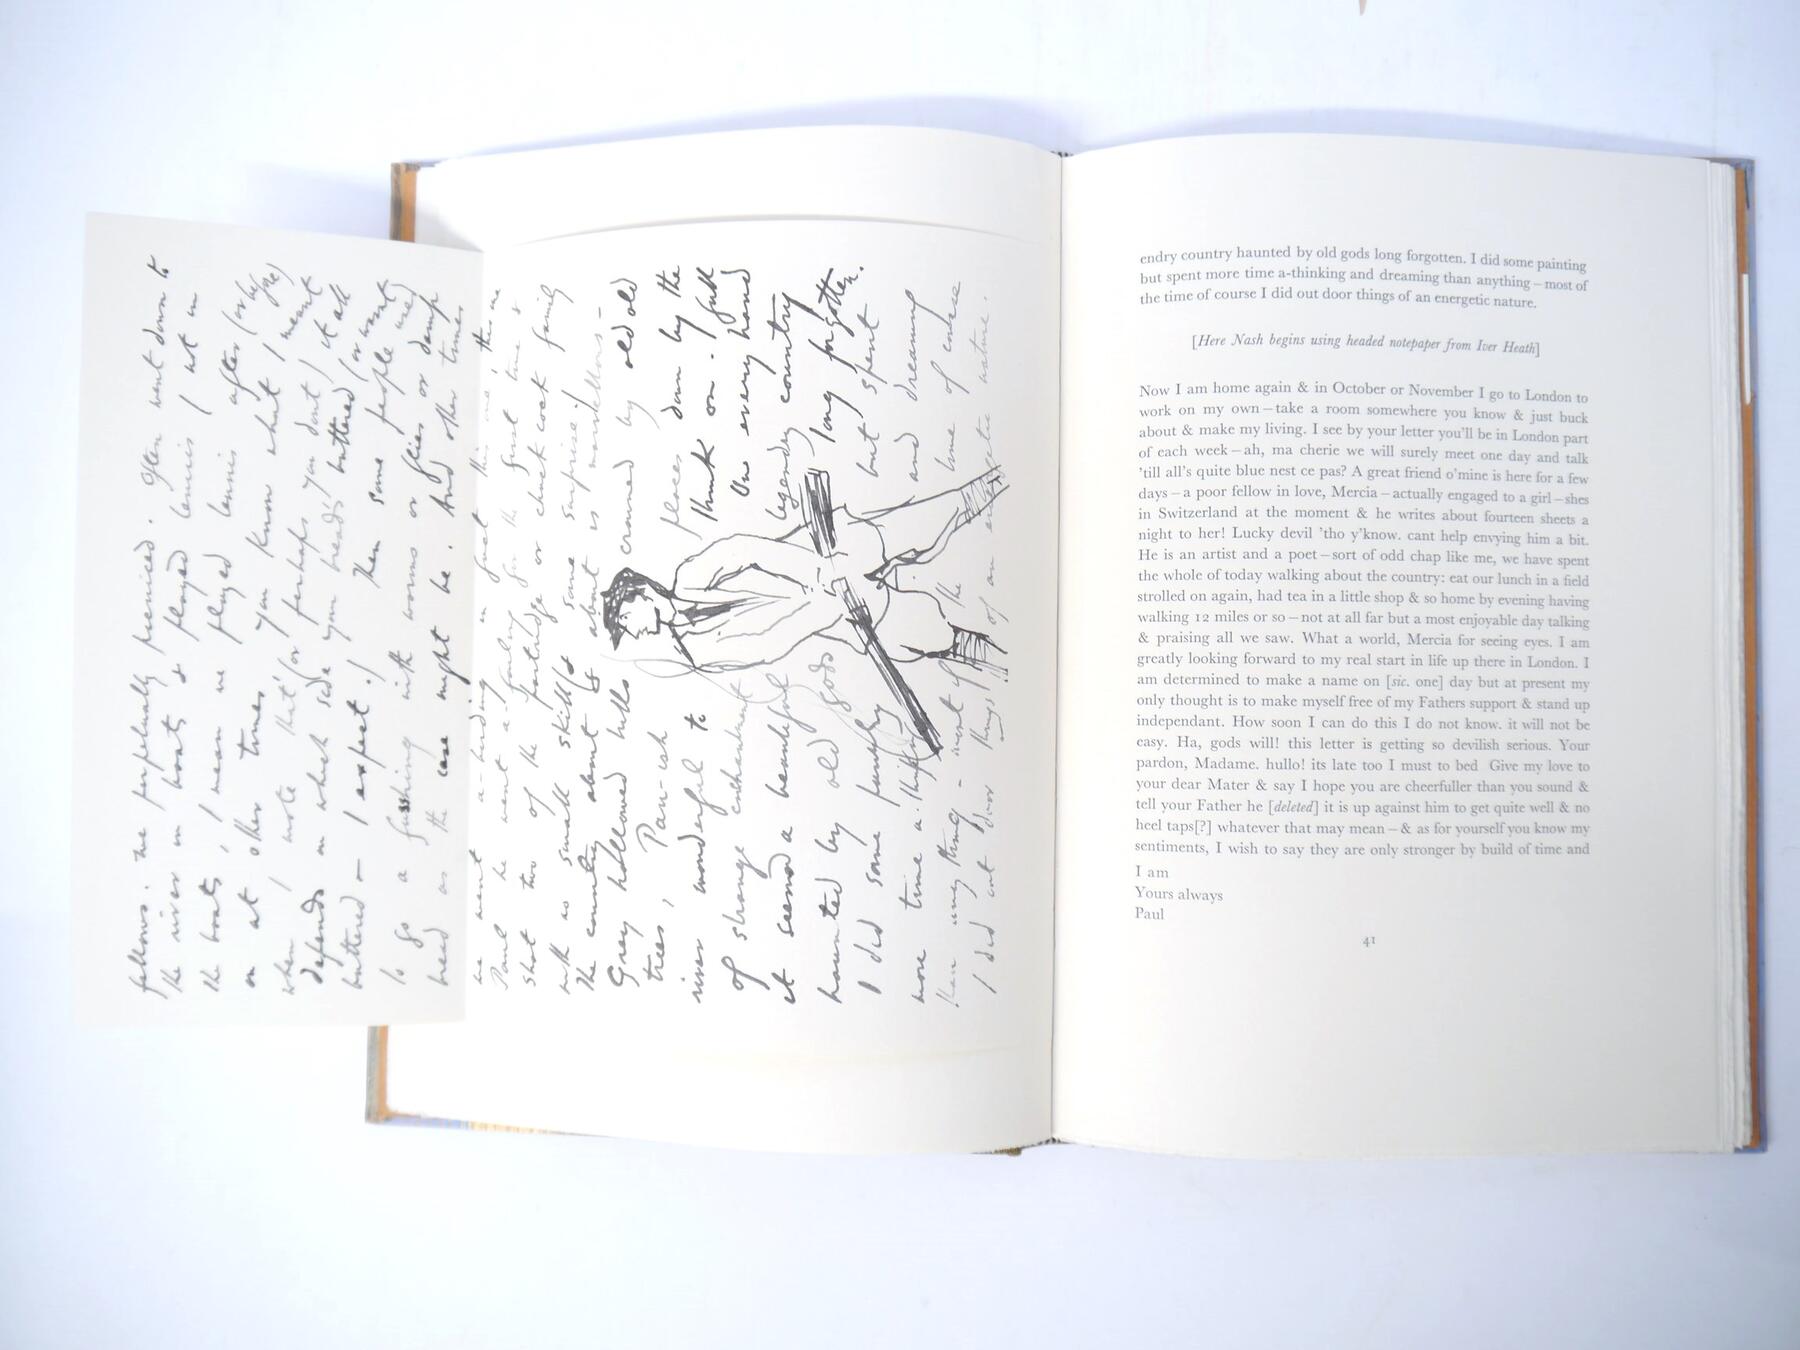 fellows. We perpetually picniced. Often went down to
the river in boats & played tennis I not in
the boats, I mean we played tennis after (or before)
on at other times you know what I meant
when I wrote that (or perhaps you dont) it all
depends on which side your bread's buttered (or wasnt
buttered — I expect.! Then some people used
to go a fushing with worms or flies or damp
bread as the case might be. And other times
we went a-birding in fact this one this one
Paul he went a-fowling for the first time &
shot two of the partridge or chuck cock family
with as small skill & some surprise!
The country about & about is marvellous –
Grey hollowed hills crowned by old old
trees, Pan-ish places down by the
river wonderful to think on. I full
of strange enchantment On every hand
it seemed a beautiful legendry country
haunted by old gods long forgotten.
I did some painting but spent
more time a-thinking and dreaming
than any thing – most of the time of course
I did out door things of an energetic nature.
endry country haunted by old gods long forgotten. I did some painting
but spent more time a-thinking and dreaming than anything – most of
the time of course I did out door things of an energetic nature.
[Here Nash begins using headed notepaper from Iver Heath]
Now I am home again & in October or November I go to London to
work on my own – take a room somewhere you know & just buck
about & make my living. I see by your letter you'll be in London part
of each week – ah, ma cherie we will surely meet one day and talk
'till all's quite blue nest ce pas? A great friend o'mine is here for a few
days – a poor fellow in love, Mercia – actually engaged to a girl – shes
in Switzerland at the moment & he writes about fourteen sheets a
night to her! Lucky devil 'tho y'know. cant help envying him a bit.
He is an artist and a poet – sort of odd chap like me, we have spent
the whole of today walking about the country: eat our lunch in a field
strolled on again, had tea in a little shop & so home by evening having
walking 12 miles or so – not at all far but a most enjoyable day talking
& praising all we saw. What a world, Mercia for seeing eyes. I am
greatly looking forward to my real start in life up there in London. I
am determined to make a name on [sic. one] day but at present my
only thought is to make myself free of my Fathers support & stand up
independant. How soon I can do this I do not know. it will not be
easy. Ha, gods will! this letter is getting so devilish serious. Your
pardon, Madame. hullo! its late too I must to bed Give my love to
your dear Mater & say I hope you are cheerfuller than you sound &
tell your Father he [deleted] it is up against him to get quite well & no
heel taps[?] whatever that may mean – & as for yourself you know my
sentiments, I wish to say they are only stronger by build of time and
I am
Yours always
Paul
41